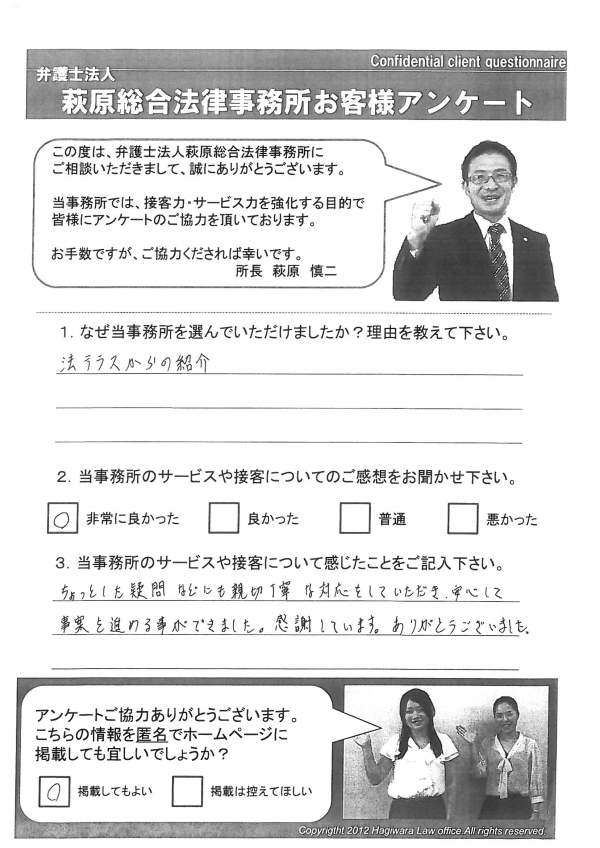 Confidential client questionnaire
弁護士法人
萩原総合法律事務所お客様アンケート
この度は、弁護士法人萩原総合法律事務所に
ご相談いただきまして、誠にありがとうございます。
当事務所では、接客力・サービス力を強化する目的で
皆様にアンケートのご協力を頂いております。
お手数ですが、ご協力くだされば幸いです。
所長　萩原　慎二
1. なぜ当事務所を選んでいただけましたか？理由を教えて下さい。
法テラスからの紹介
2. 当事務所のサービスや接客についてのご感想をお聞かせ下さい。
○ 非常に良かった　良かった　普通　悪かった
3. 当事務所のサービスや接客について感じたことをご記入下さい。
ちょっとした疑問などにも親切丁寧な対応をしていただき、安心して
事案を進める事ができました。感謝しています。ありがとうございました。
アンケートご協力ありがとうございます。
こちらの情報を匿名でホームページに
掲載しても宜しいでしょうか？
○ 掲載してもよい　掲載は控えてほしい
Copyrigtht 2012 Hagiwara Law office.All rights reserved.